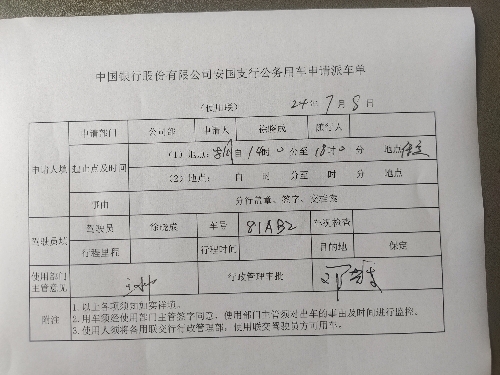 中国银行股份有限公司安国支行公务用车申请派车单
(使用联) 24年7月8日
申请部门 公司部 申请人 徐晓成 随行人
申请人填 起止点及时间 (1)地点: 安国 自 14时0分至18时0分 地点 保定
(2)地点: 自 时 分至 时 分 地点
事由 分行盖章、签字、交档案
驾驶员填 驾驶员 徐晓成 车号 81AB2 车况检查
行程里程 行程时间 目的地 保定
使用部门主管意见 行政管理审批
附注
1.以上各项须如实详填。
2.用车须经使用部门主管签字同意，使用部门主管须对出车的事由及时间进行监控。
3.使用人须将各用联交行政管理部，使用联交驾驶员方可用车。